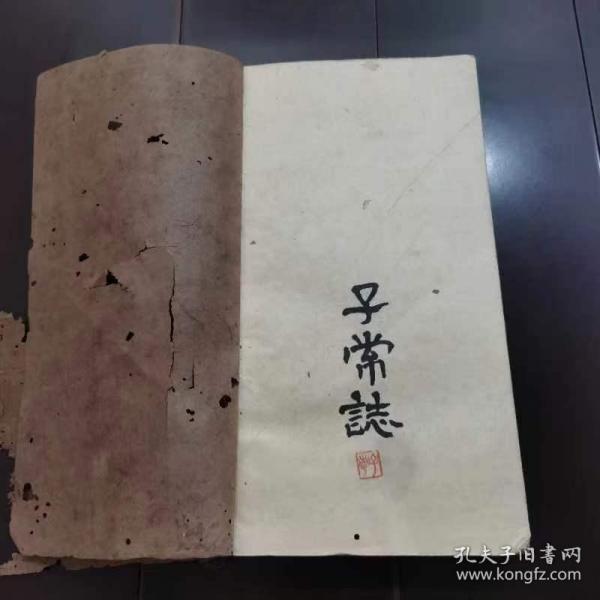 子常誌
孔夫子旧書网
www.kongfz.com